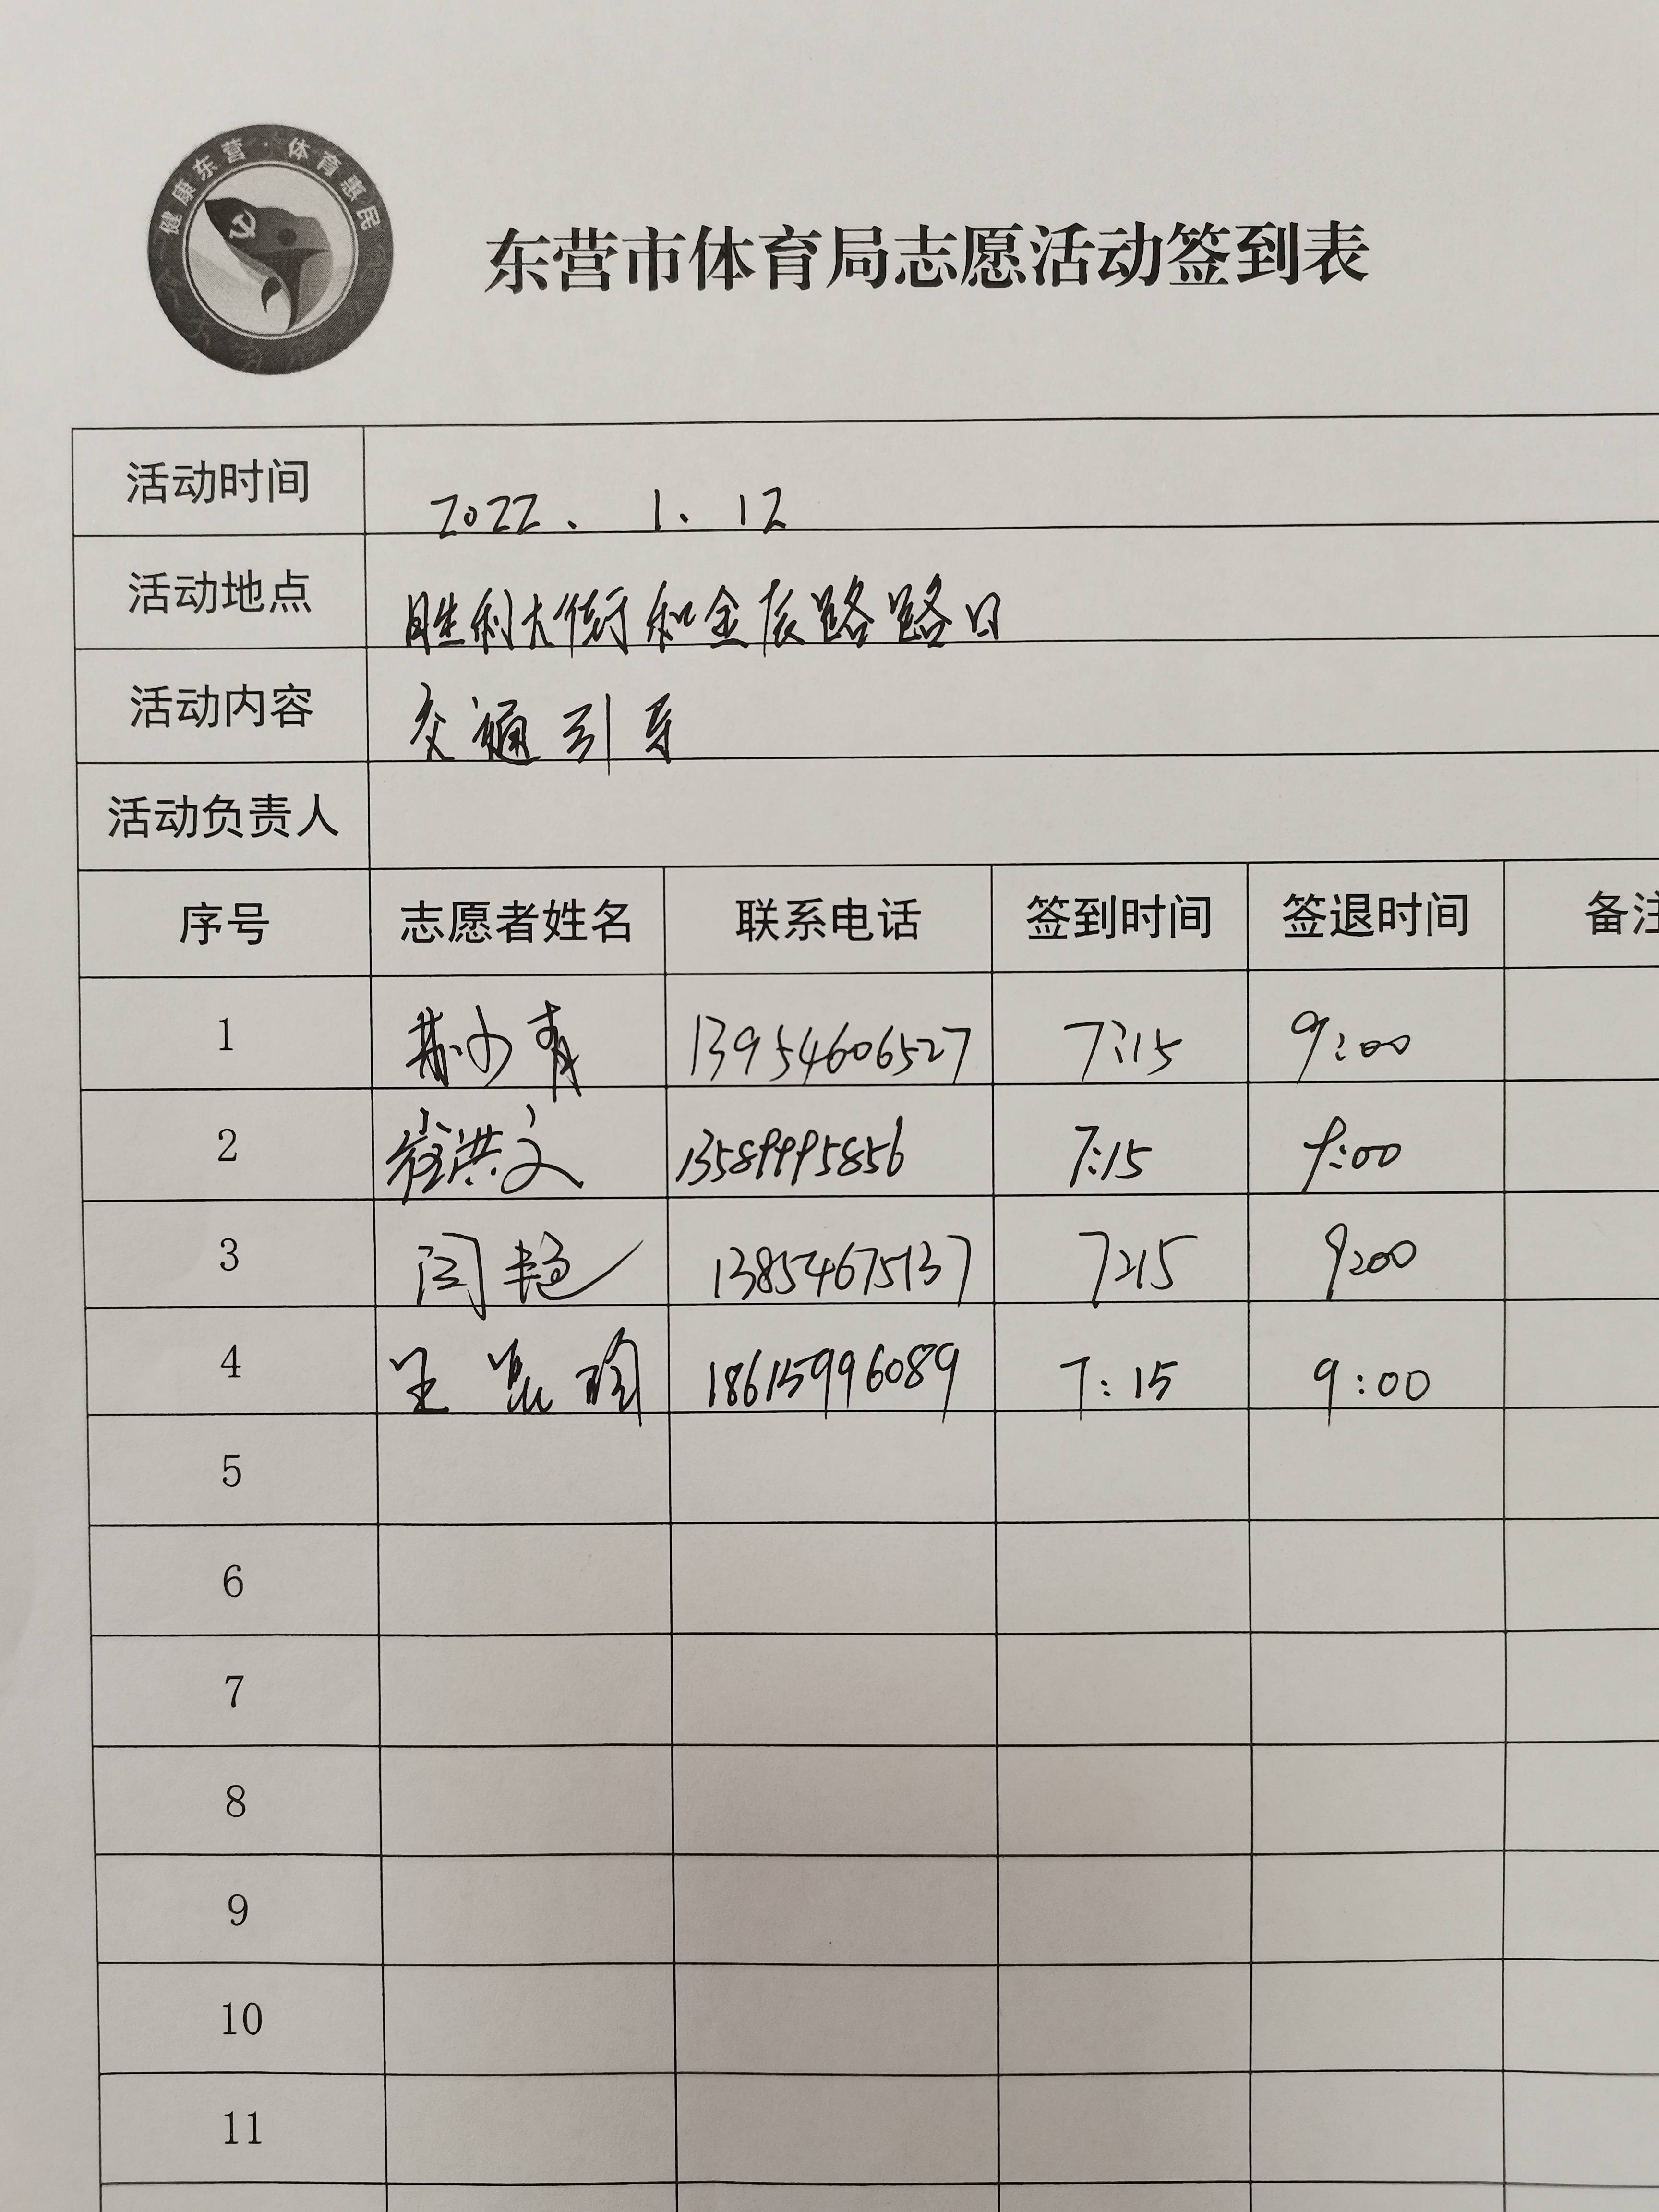 健康东营·体育惠民
东营市体育局志愿活动签到表
活动时间 2022. 1. 12
活动地点 胜利大街和金辰路路口
活动内容 交通引导
活动负责人
序号 志愿者姓名 联系电话 签到时间 签退时间 备注
1 13954606527 7:15 9:00
2 崔洪文 13589995856 7:15 9:00
3 闫艳 13854675137 7:15 9:00
4 王昆 18615996089 7:15 9:00
5
6
7
8
9
10
11